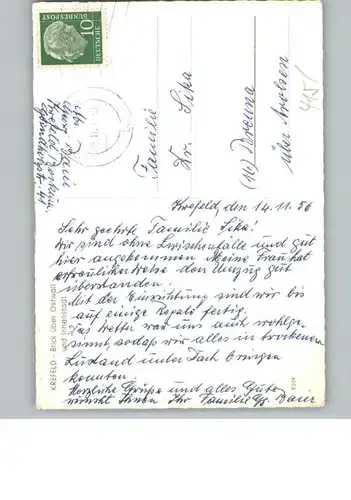 DEUTSCHE
BUNDESPOST
10
Familie
Dr. Sika
(16) 
über Arolsen
415
Abs.
Krefeld
Krefeld, den 14.11.56
Sehr geehrte Familie Sika!
Wir sind ohne Zwischenfälle und gut
hier angekommen. Meine Frau hat
erfreulicherweise den Umzug gut
überstanden.
Mit der Einrichtung sind wir bis
auf einige Regale fertig.
Das Wetter war uns auch wohlge-
sinnt, sodaß wir alles in trockenem
Zustand unter Dach bringen
konnten.
Herzliche Grüße und alles Gute
wünscht Ihnen Ihr Familie
KREFELD - Blick über Ostwall
und Innenstadt